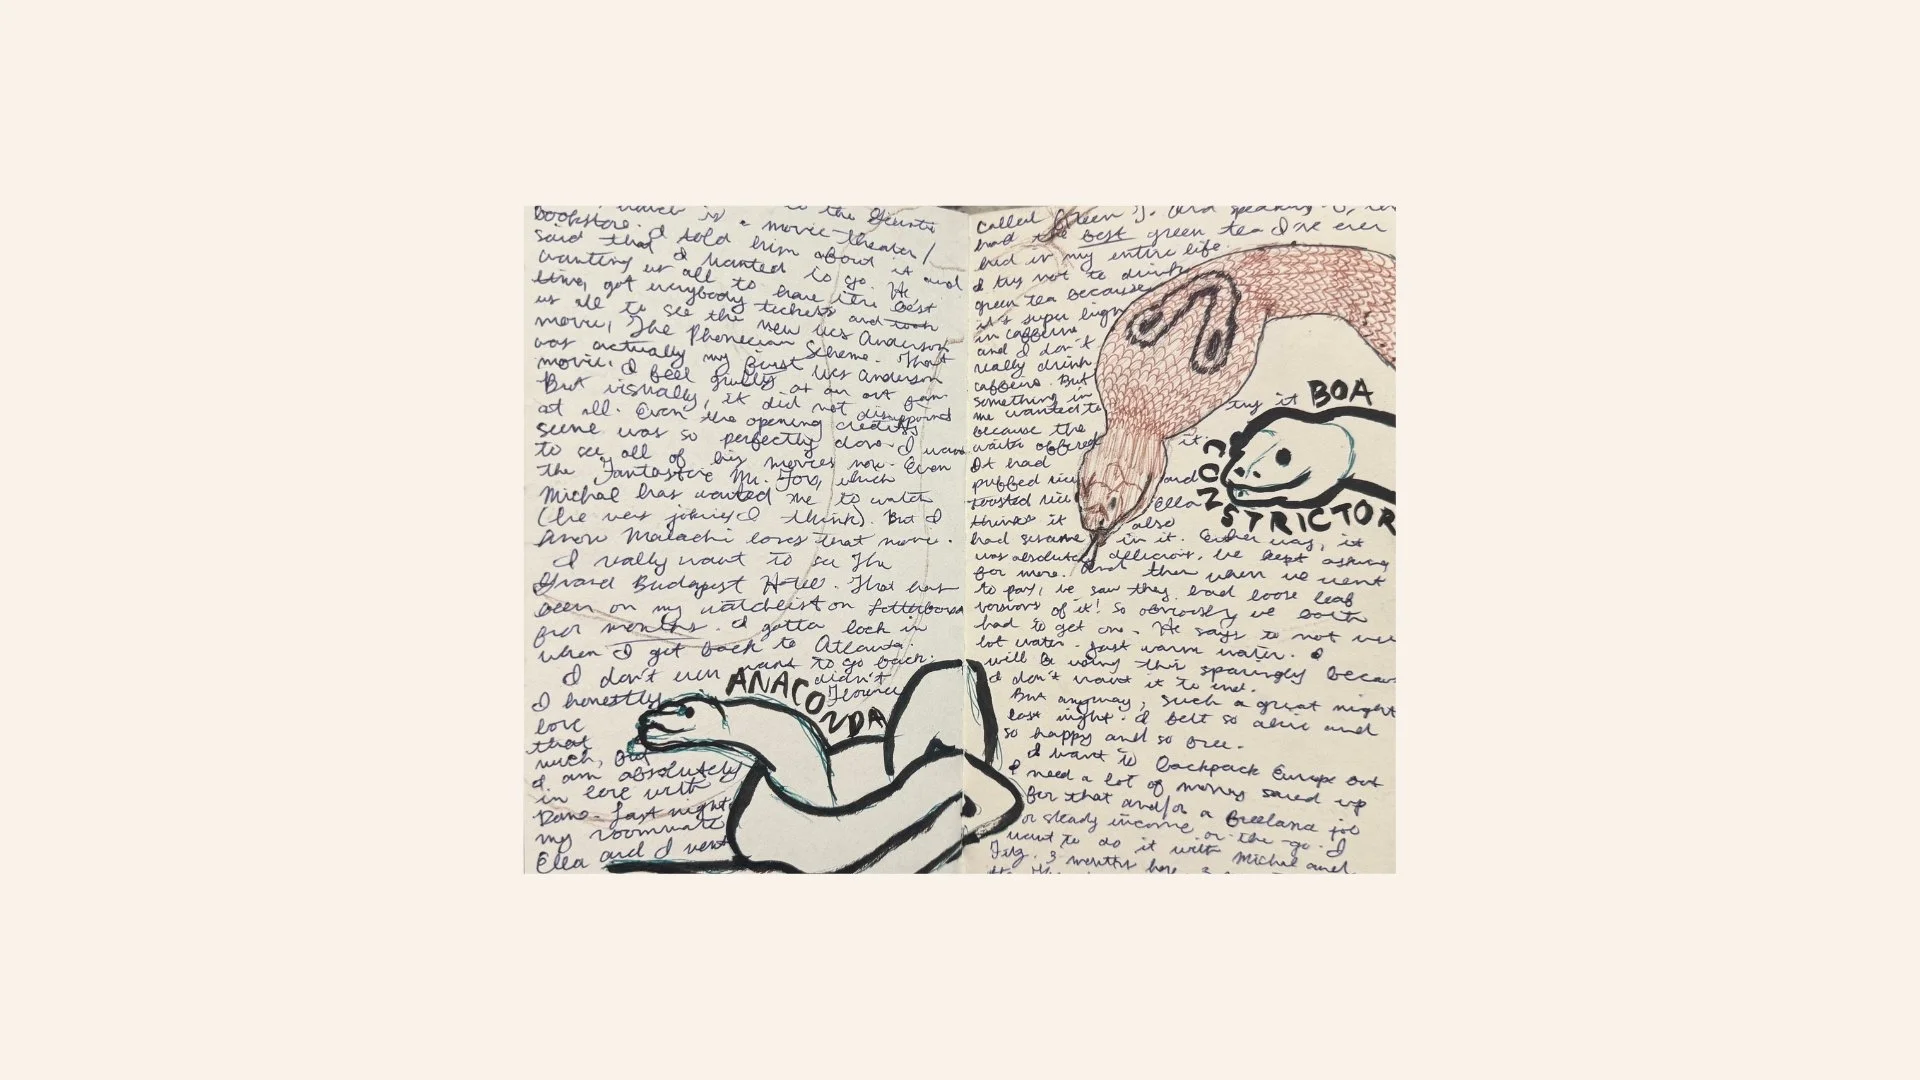 bookstore. which is a movie theater/
said that I told him about it and
wanting us all to go. He
time, got everybody to have the best
us all to see the tickets and took
movie, The Phonecian Scheme. That
was actually my first Wes Anderson
movie. I feel guilty as an art fan
But visually, it did not disappoint
at all. Even the opening credits
scene was so perfectly done. I want
to see all of his movies now. Even
the Fantastic Mr. Fox, which
Michal has wanted me to watch
(he was joking I think). But I
know Malachi loves that movie.
I really want to see The
Grand Budapest Hotel. That has
been on my watchlist on Letterboxd
for months. I gotta lock in
when I get back to Atlanta.
I don't even want to go back.
I honestly didn't
love Florence
that
much, but
I am absolutely
in love with
Last night
my roommate
Ella and I went
ANACONDA
called Green T. And speaking of, I
had the best green tea I've ever
had in my entire life.
I try not to drink
green tea because
it's super high
in caffeine
and I don't
really drink
caffeine. But
something in
me wanted to try it
because the
waiter offered it.
It had
puffed rice and
toasted rice Ella
thinks it also
had sesame in it. Either way, it
was absolutely delicious, we kept asking
for more. And then when we went
to pay, we saw they had loose leaf
versions of it! So obviously we both
had to get one. He says to not use
hot water. Just warm water. I
will be using this sparingly because
I don't want it to end.
But anyway, such a great night
last night. I felt so alive and
so happy and so free.
I want to backpack Europe but
I need a lot of money saved up
for that and/or a freelance job
or steady income on-the-go. I
want to do it with Michal and
3 months
BOA
CONSTRICTOR